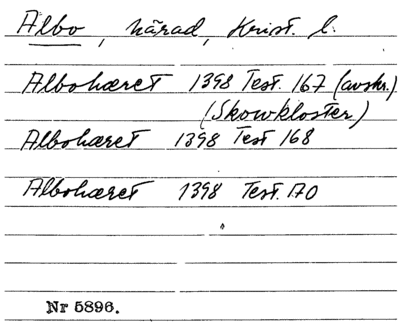 Albo, härad, Krist. l.
Albohæret 1398 Test. 167 (avskr.)
(Skowkloster)
Albohæret 1398 Test 168
Albohæret 1398 Test. 170
Nr 5896.